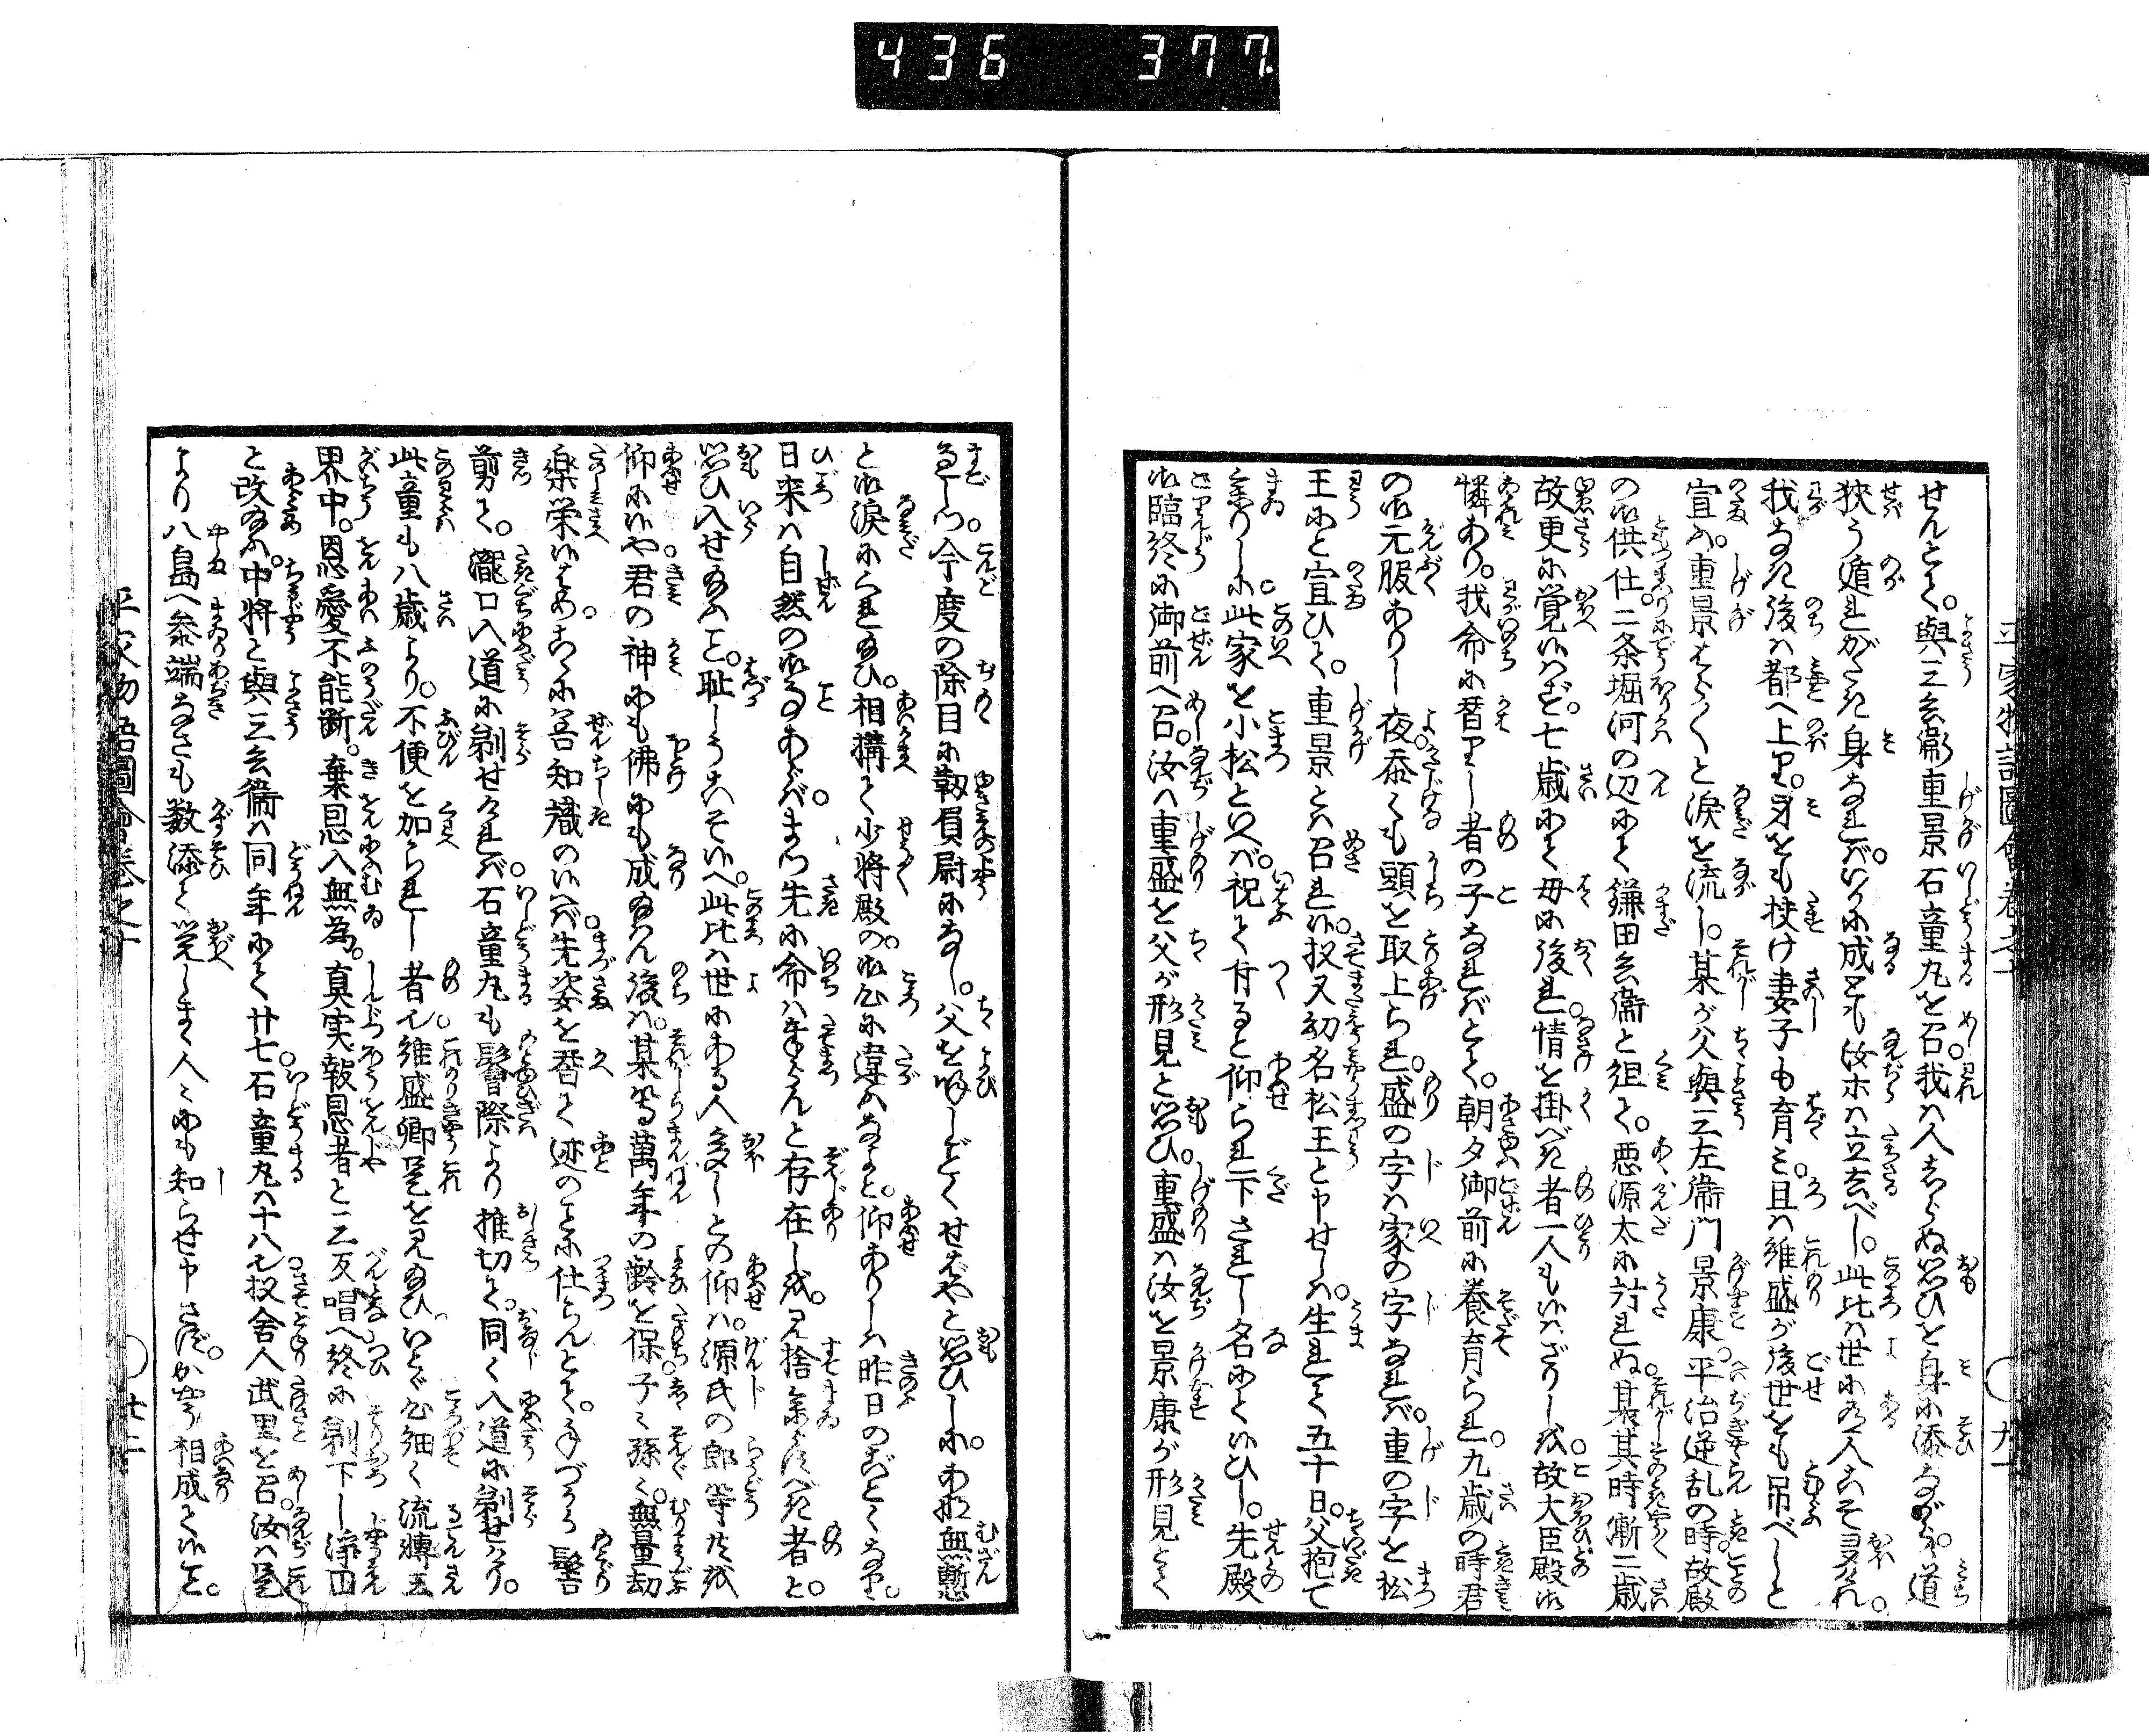 436 377
平家物語圖會巻之十
せんとて。與三兵衛重景石童丸を召。我ハ人あらぬ思ひを身に添ながら。道
狭う遁れがたき身なれバ。いかに成とも汝ホハ立去べし。此比ハ世にある人こそ多けれ。
我なき後ハ都へ上り。身をも扶け妻子も育ミ。且ハ維盛が後世をも吊べしと
宣へバ。重景はら〳〵と涙を流し。某が父與三左衛門景康。平治逆乱の時。故殿
の御供仕。二条堀河の辺にて鎌田兵衛と组て。悪源太に討れぬ。某其時漸二歳
故更に覚いはず。七歳にて母に後れ。情を掛べき者一人もいはざりしを。故大臣殿御
憐あり。我命に替りし者の子なれバとて。朝夕御前に養育られ。九歳の時君
の御元服ありし夜。忝くも頭を取上られ。盛の字ハ家の字なれバ。重の字を松
王にと宣ひて。重景とハ召れい。扨又幼名松王と申せしハ。生れて五十日。父抱て
参りしに。此家を小松といへバ。祝て付ると仰られ下されし名にていひし。先殿
御臨終に御前へ召。汝ハ重盛を父が形見と思ひ。重盛ハ汝を景康が形見とて
す。今度の除目に靱負尉になし。父を呼しごとくせばやと思ひしに。あな無慙
と御涙にくれ給ひ。相構て少将殿の。御心に違ハなよと。仰ありしハ昨日のごとくなり。
日来ハ自然の御事あらバ。まつ先に命ハ奉らんと存在しを。見捨参らすべき者と。
思ひ入せ給ふこと。耻しうこそいへ。此比ハ世にある人多しとの仰ハ。源氏の郎等共を
仰にいや。君の神にも佛にも成給はん後ハ。某等萬年の齢を保。子々孫々。無量劫
楽栄いはめ。こゝに善知識のいへバ。先姿を替て迹のことに仕らんとて。手づから髻
剪て。瀧口入道に剃せけれバ。石童丸も髻際より推切て。同く入道に剃せけり。
此童も八歳より。不便を加られし者也。維盛卿是を見給ひ。いとゞ心細く流轉三
界中。恩愛不能断。棄恩入無為。真実報恩者と三反唱へ終に剃下し淨圓
と改給ふ。中将と與三兵衛ハ同年にて廿七。石童丸ハ十八也。扨舎人武里を召。汝ハ是
より八島へ参。端なさも数添て覚し。まく人々にも知らせ申さず。か様相成ていこと。
平家物語圖會巻之十